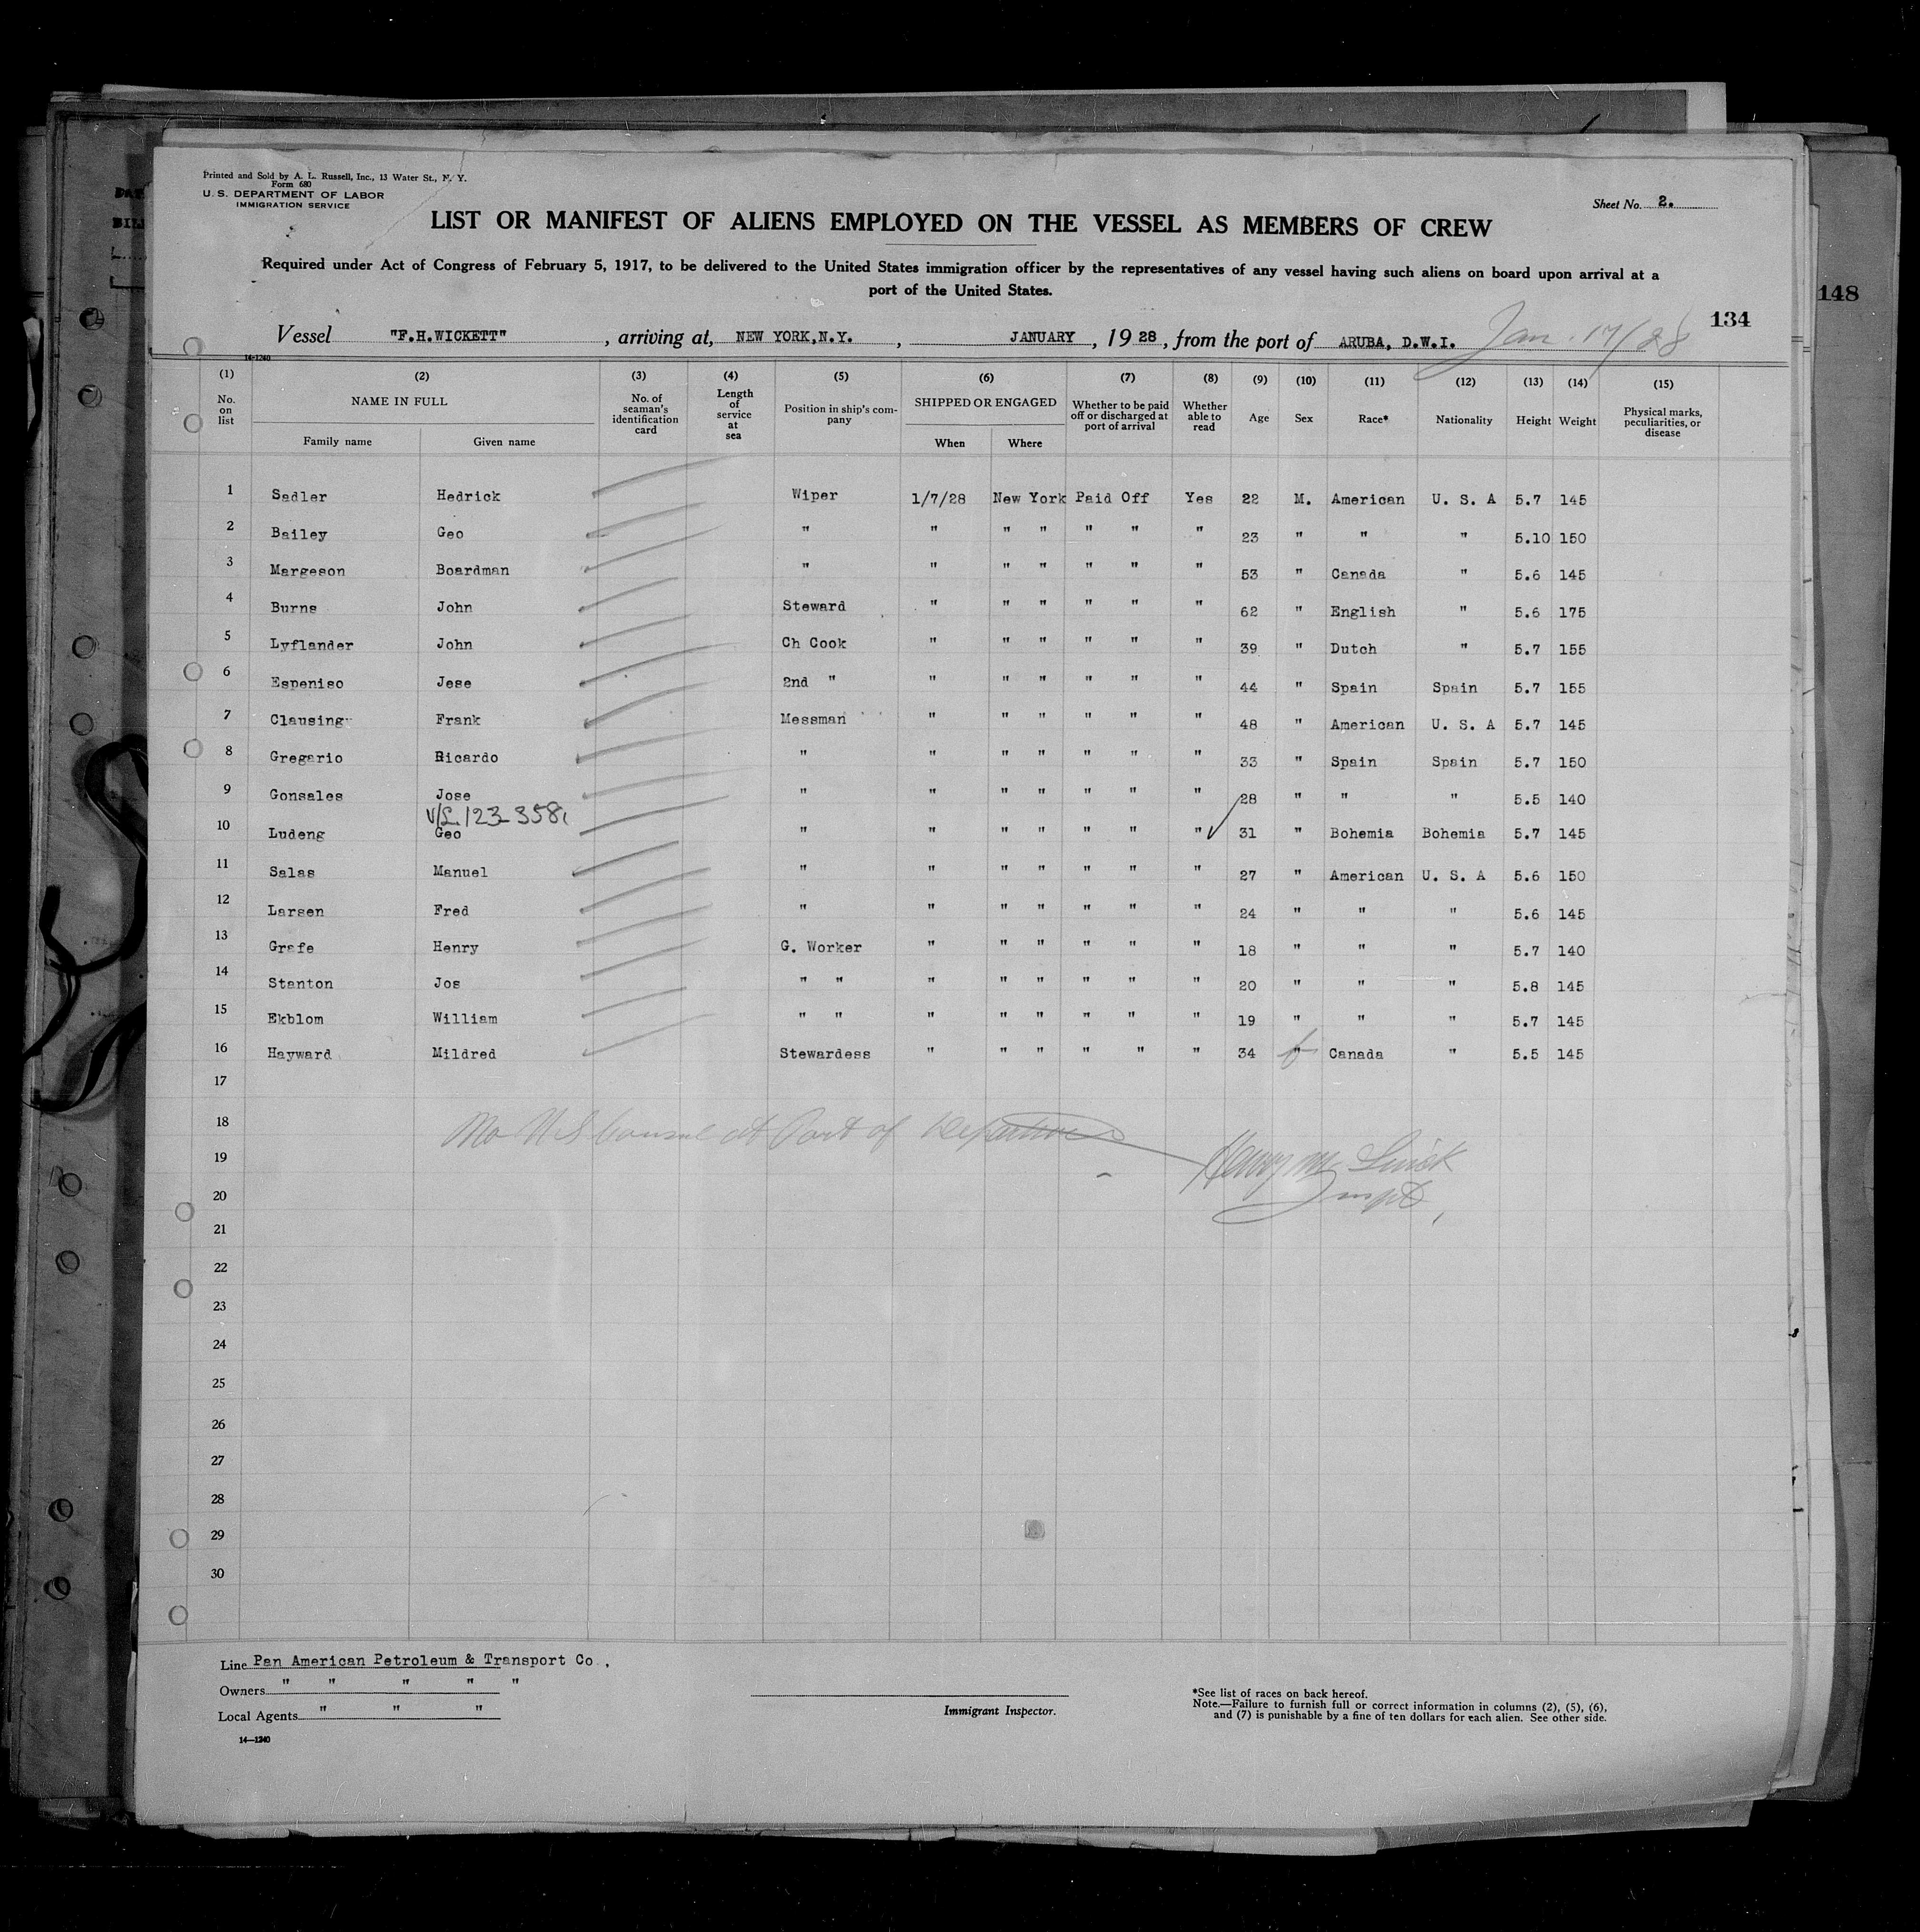 Printed and Sold by A. L. Russell, Inc., 13 Water St., N. Y.
Form 680
U. S. DEPARTMENT OF LABOR
IMMIGRATION SERVICE
Sheet No. 2.
LIST OR MANIFEST OF ALIENS EMPLOYED ON THE VESSEL AS MEMBERS OF CREW
Required under Act of Congress of February 5, 1917, to be delivered to the United States immigration officer by the representatives of any vessel having such aliens on board upon arrival at a
port of the United States.
148
134
Vessel "F.H.WICKETT" , arriving at, NEW YORK,N.Y. , JANUARY , 19 28 , from the port of ARUBA, D.W.I. Jan. 17/28
14-1240
(1) (2) (3) (4) (5) (6) (7) (8) (9) (10) (11) (12) (13) (14) (15)
No. on list NAME IN FULL Family name Given name No. of seaman's identification card Length of service at sea Position in ship's company SHIPPED OR ENGAGED When Where Whether to be paid off or discharged at port of arrival Whether able to read Age Sex Race* Nationality Height Weight Physical marks, peculiarities, or disease
1 Sadler Hedrick Wiper 1/7/28 New York Paid Off Yes 22 M. American U. S. A 5.7 145
2 Bailey Geo " " " " " " " 23 " " " 5.10 150
3 Margeson Boardman " " " " " " " 53 " Canada " 5.6 145
4 Burns John Steward " " " " " " 62 " English " 5.6 175
5 Lyflander John Ch Cook " " " " " " 39 " Dutch " 5.7 155
6 Espeniso Jese 2nd " " " " " " " 44 " Spain Spain 5.7 155
7 Clausing Frank Messman " " " " " " 48 " American U. S. A 5.7 145
8 Gregario Ricardo " " " " " " " 33 " Spain Spain 5.7 150
9 Gonsales Jose " " " " " " " 28 " " " 5.5 140
V/L. 123358,
10 Ludeng Geo " " " " " " " 31 " Bohemia Bohemia 5.7 145
11 Salas Manuel " " " " " " " 27 " American U. S. A 5.6 150
12 Larsen Fred " " " " " " " 24 " " " 5.6 145
13 Grafe Henry G. Worker " " " " " " 18 " " " 5.7 140
14 Stanton Jos " " " " " " " " 20 " " " 5.8 145
15 Ekblom William " " " " " " " " 19 " " " 5.7 145
16 Hayward Mildred Stewardess " " " " " " 34 " f Canada " 5.5 145
17
18 No U S Consul at Port of Departure
19 Henry M.
20 Inspt,
21
22
23
24
25
26
27
28
29
30
Line Pan American Petroleum & Transport Co.,
Owners " " " " "
Local Agents " " "
14—1240
Immigrant Inspector.
*See list of races on back hereof.
Note.—Failure to furnish full or correct information in columns (2), (5), (6),
and (7) is punishable by a fine of ten dollars for each alien. See other side.